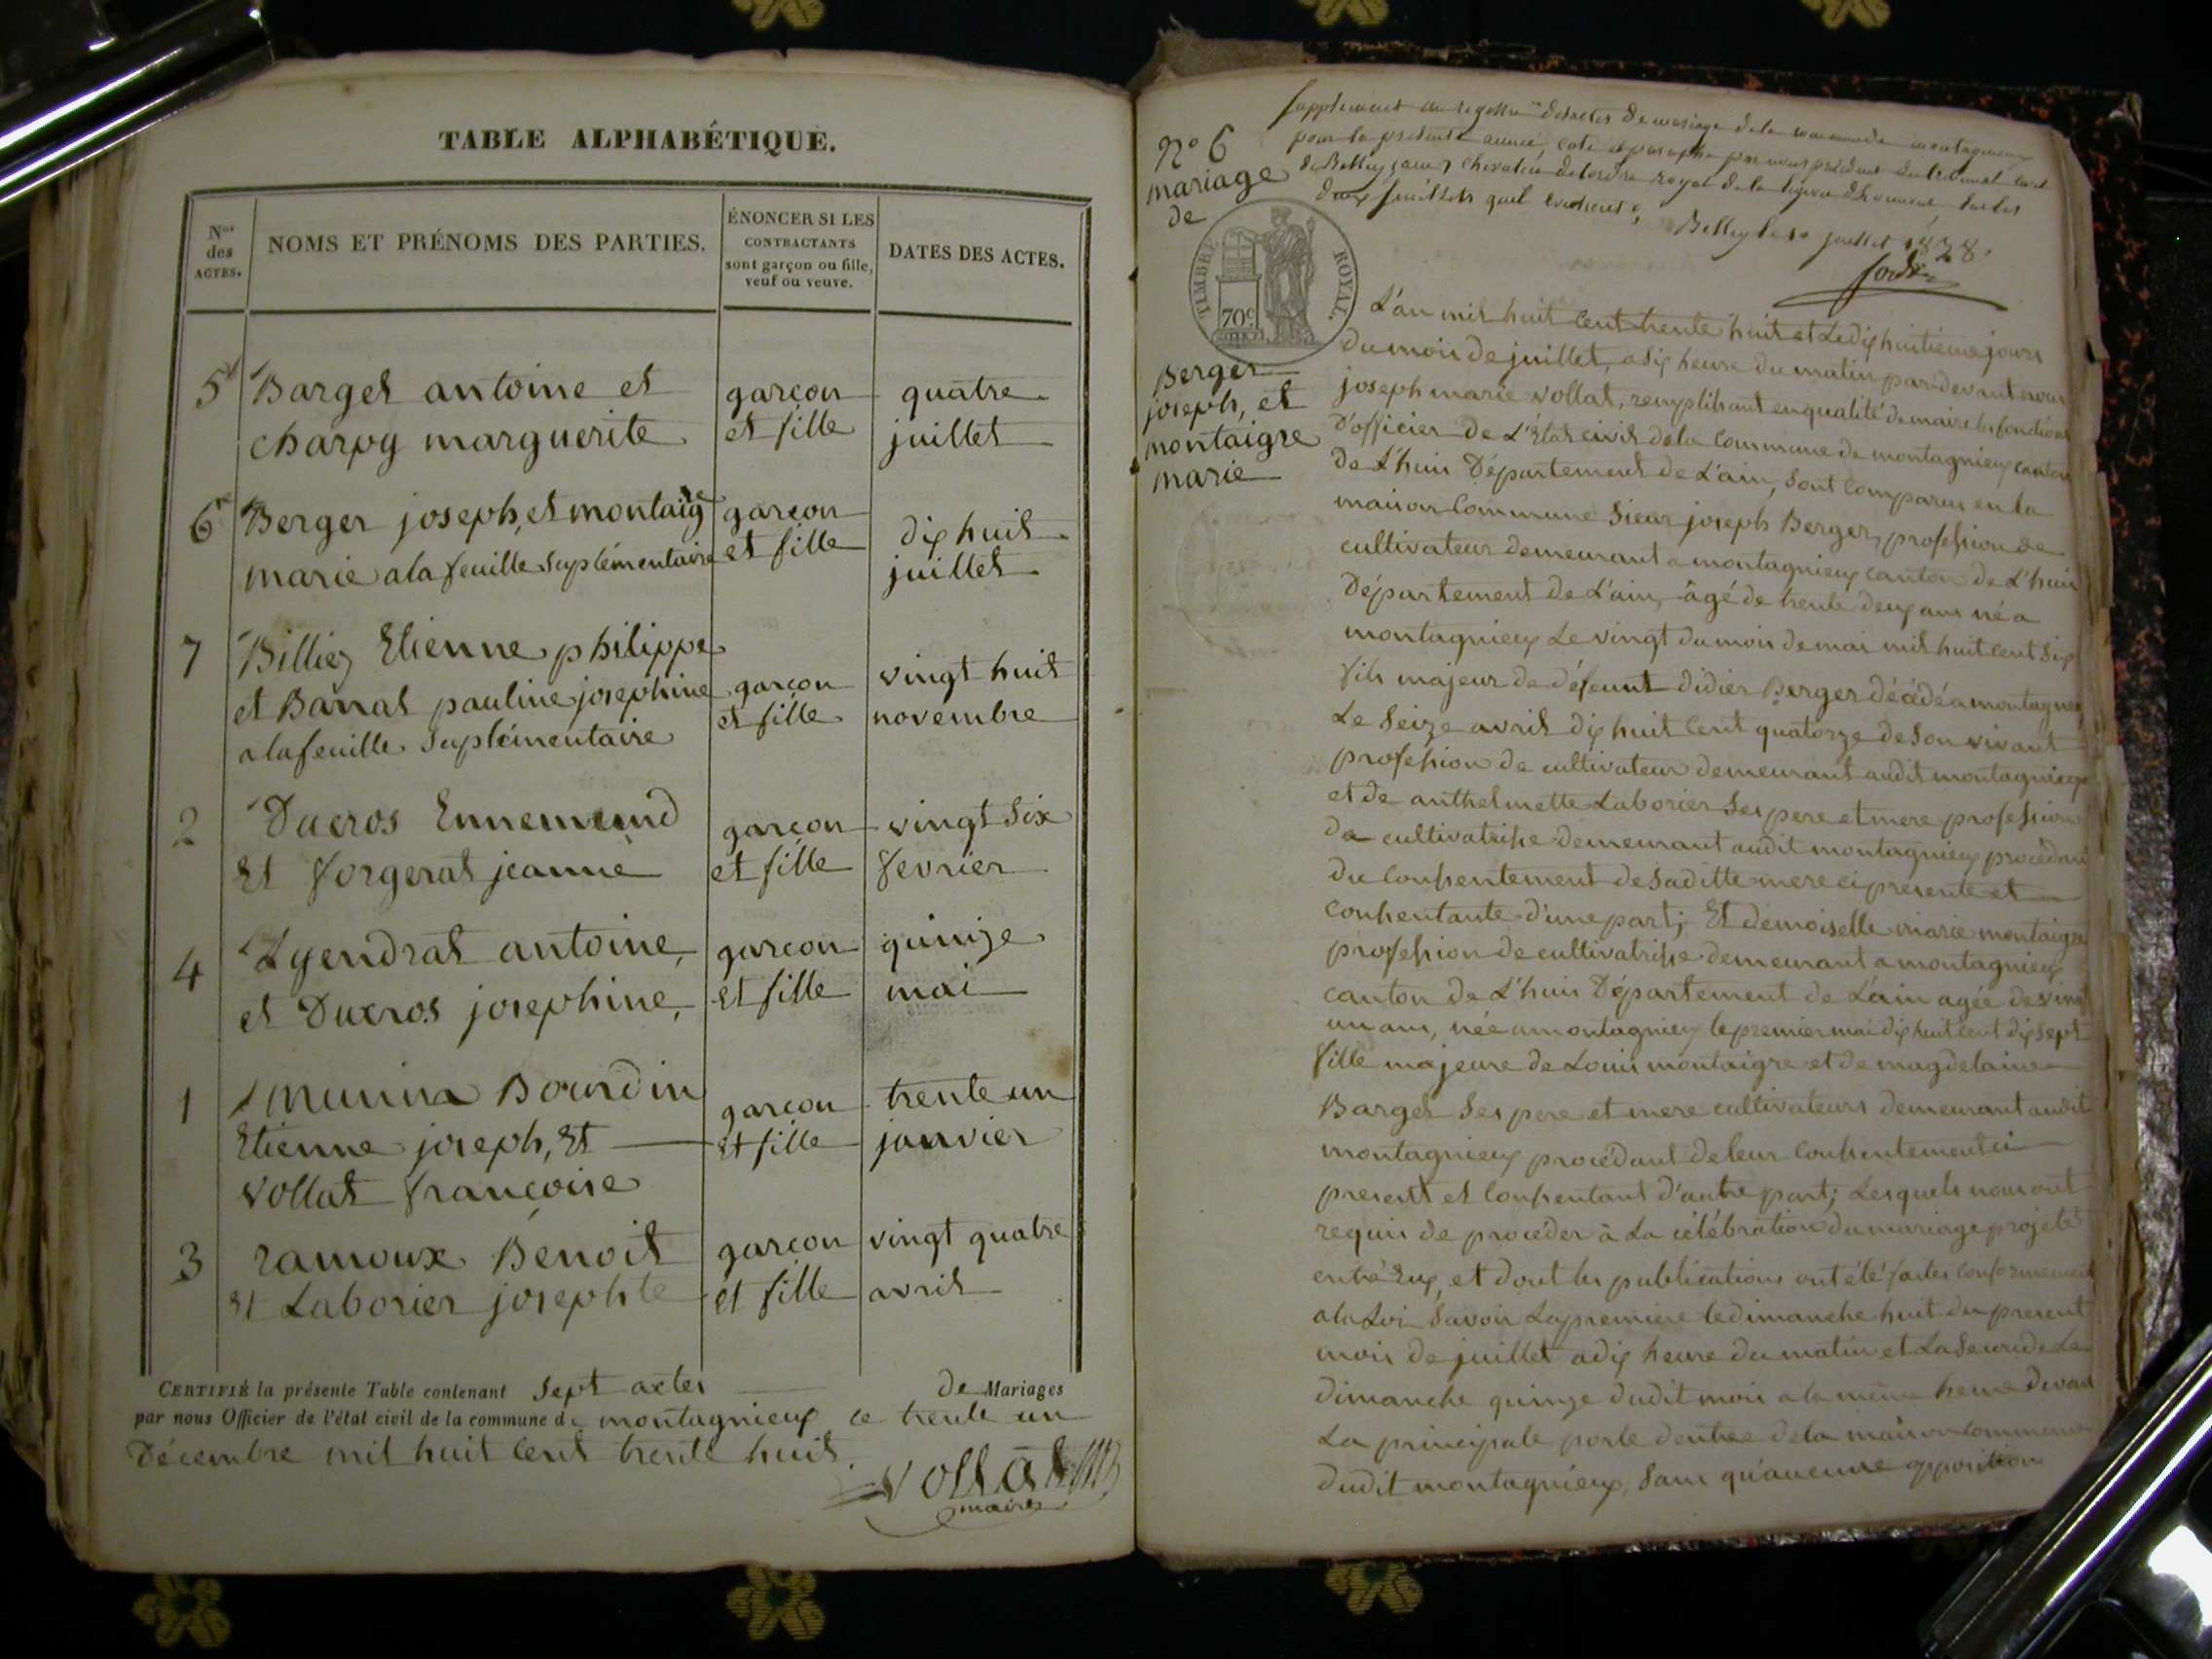 TABLE ALPHABÉTIQUE.
Nos des ACTES.
NOMS ET PRÉNOMS DES PARTIES.
ÉNONCER SI LES
CONTRACTANTS
sont garçon ou fille,
veuf ou veuve.
DATES DES ACTES.
5 Barget antoine et garçon quatre
charpy marguerite et fille juillet
6 Berger joseph, et montaigre garçon dix huit
marie a la feuille suplémentaire et fille juillet
7 Billiez Etienne philippe
et Barral pauline josephine garçon vingt huit
a la feuille suplémentaire et fille novembre
2 Ducros Ennemond garçon vingt six
Et forgerat jeanne et fille fevrier
4 Lyendrat antoine, garçon quinze
et Ducros josephine, et fille mai
1 Munina Bourdin garçon trente un
Etienne joseph, Et Et fille janvier
vollat françoise
3 ramoux Benoit garçon vingt quatre
Et Laborier josephte et fille avril
CERTIFIÉ la présente Table contenant sept actes de Mariages
par nous Officier de l'état civil de la commune de montagnieux ce trente un
Décembre mil huit cent trente huit.
vollat
maire
supplement au registre des actes de mariage de la commune de montagnieux
pour la presente année, coté et paraphé par nous président du tribunal civil
de Belley, chevalier de l'ordre royal de la legion d'honneur
deux feuillets
Belley le 10 juillet 1838.
N° 6
mariage
de
TIMBRE ROYAL.
70c
Berger
joseph, et
montaigre
marie
L'an mil huit cent trente huit et Le dix huitieme jours
du mois de juillet, a dix heure du matin par devant nous
joseph marie vollat, remplissant en qualité de maire les fonctions
D'officier de L'état civil de la commune de montagnieux canton
de L'huis Département de L'ain, sont comparus en la
maison commune sieur joseph Berger, profession de
cultivateur demeurant a montagnieux canton de L'huis
Département de L'ain, âgé de trente deux ans né a
montagnieux Le vingt du mois de mai mil huit cent six
fils majeur de défeunt didier Berger décédé a montagnieux
Le seize avril dix huit cent quatorze de son vivant
profession de cultivateur demeurant audit montagnieux
et de anthelmette Laborier ses pere et mere profession
de cultivatrisse demeurant audit montagnieux procédant
du consentement de saditte mere ci presente et
consentante d'une part; Et demoiselle marie montaigre
profession de cultivatrisse demeurant a montagnieux
canton de L'huis Département de L'ain agée de vingt
un ans, née a montagnieux le premier mai dix huit cent dix sept
fille majeure de Louis montaigre et de magdelaine
Barget ses pere et mere cultivateurs demeurant audit
montagnieux procédant de leur consentement ci
presents et consentant d'autre part; Lesquels nous ont
requis de procéder à La célébration du mariage projeté
entre Eux, et dont les publications ont été faites conformement
a la Loi savoir La premiere le dimanche huit du present
mois de juillet a dix heure du matin et La seconde Le
dimanche quinze dudit mois a la même heure devant
La principale porte dentrée de la maison commune
dudit montagnieux, sans qu'aucune opposition